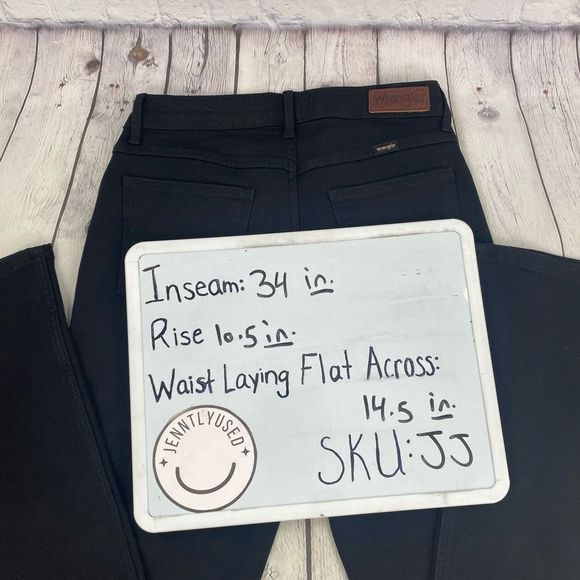 Wrangler
Wrangler
Inseam: 34 in.
Rise 10.5 in.
Waist Laying Flat Across:
14.5 in.
JENNTLYUSED
SKU: JJ